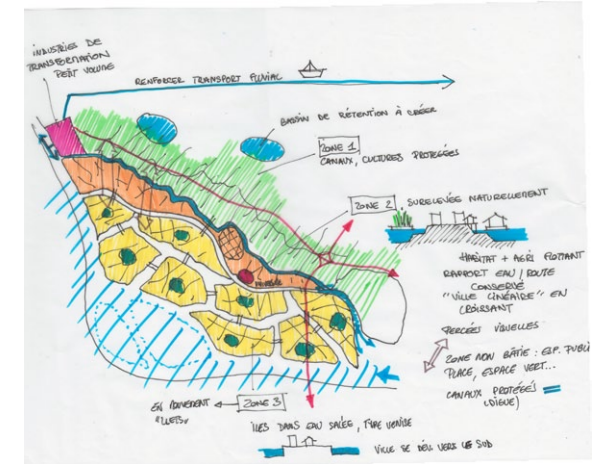 INDUSTRIES DE
TRANSFORMATION
PETIT VOLUME
RENFORCER TRANSPORT FLUVIAL
BASSIN DE RÉTENTION À CRÉER
ZONE 1
CANAUX, CULTURES PROTEGÉES
ZONE 2, SURELEVÉE NATURELLEMENT
HABITAT + AGRI FLOTTANT
RAPPORT EAU / ROUTE
CONSERVÉ
"VILLE LINÉAIRE" EN
CROISSANT
PERCÉES VISUELLES
ZONE NON BÂTIE : ESP. PUBLI
PLACE, ESPACE VERT...
CANAUX PROTÉGÉS
(DIGUE)
EN MOUVEMENT
ZONE 3
ÎLES DANS EAU SALÉE, TYPE VENISE
VILLE SE DÉV. VERS LE SUD